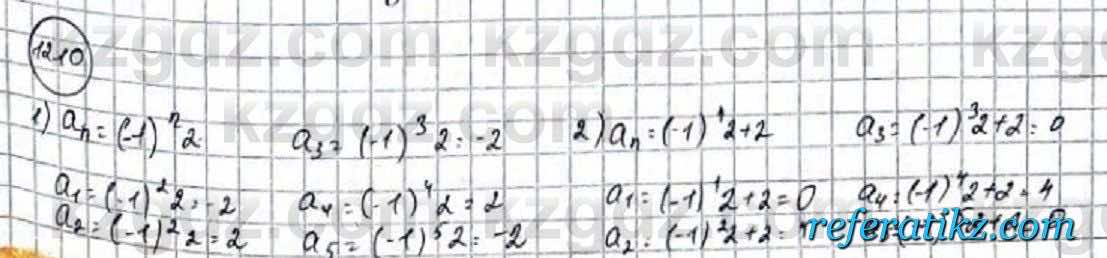 kzgdz.com kzgdz.com kzgdz.com
1210
1) aₙ = (-1)ⁿ2. a₃ = (-1)³2 = -2 2) aₙ = (-1)¹2+2 a₃ = (-1)³2+2 = 0
a₁ = (-1)²2 = -2 a₄ = (-1)⁴2 = 2 a₁ = (-1)¹2+2 = 0 a₄ = (-1)⁴2+2 = 4
a₂ = (-1)²2 = 2 a₅ = (-1)⁵2 = -2 a₂ = (-1)²2+2 =
referatikz.com